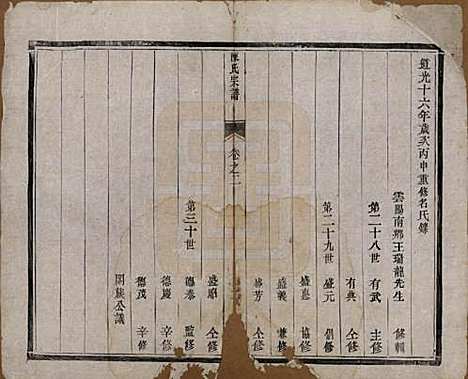 道光十六年歲次丙申重修名氏錄
雲陽南鄉王瑞龍先生 修輯
第二十八世 有武 主修
有典 仝修
第二十九世 盛元 倡修
盛嘉 協修
盛義 兼修
芳 仝修
陳氏宗譜
卷之二
第三十世 盛順 仝修
德泰 監修
德慶 仝修
德茂 辛修
闔族公議